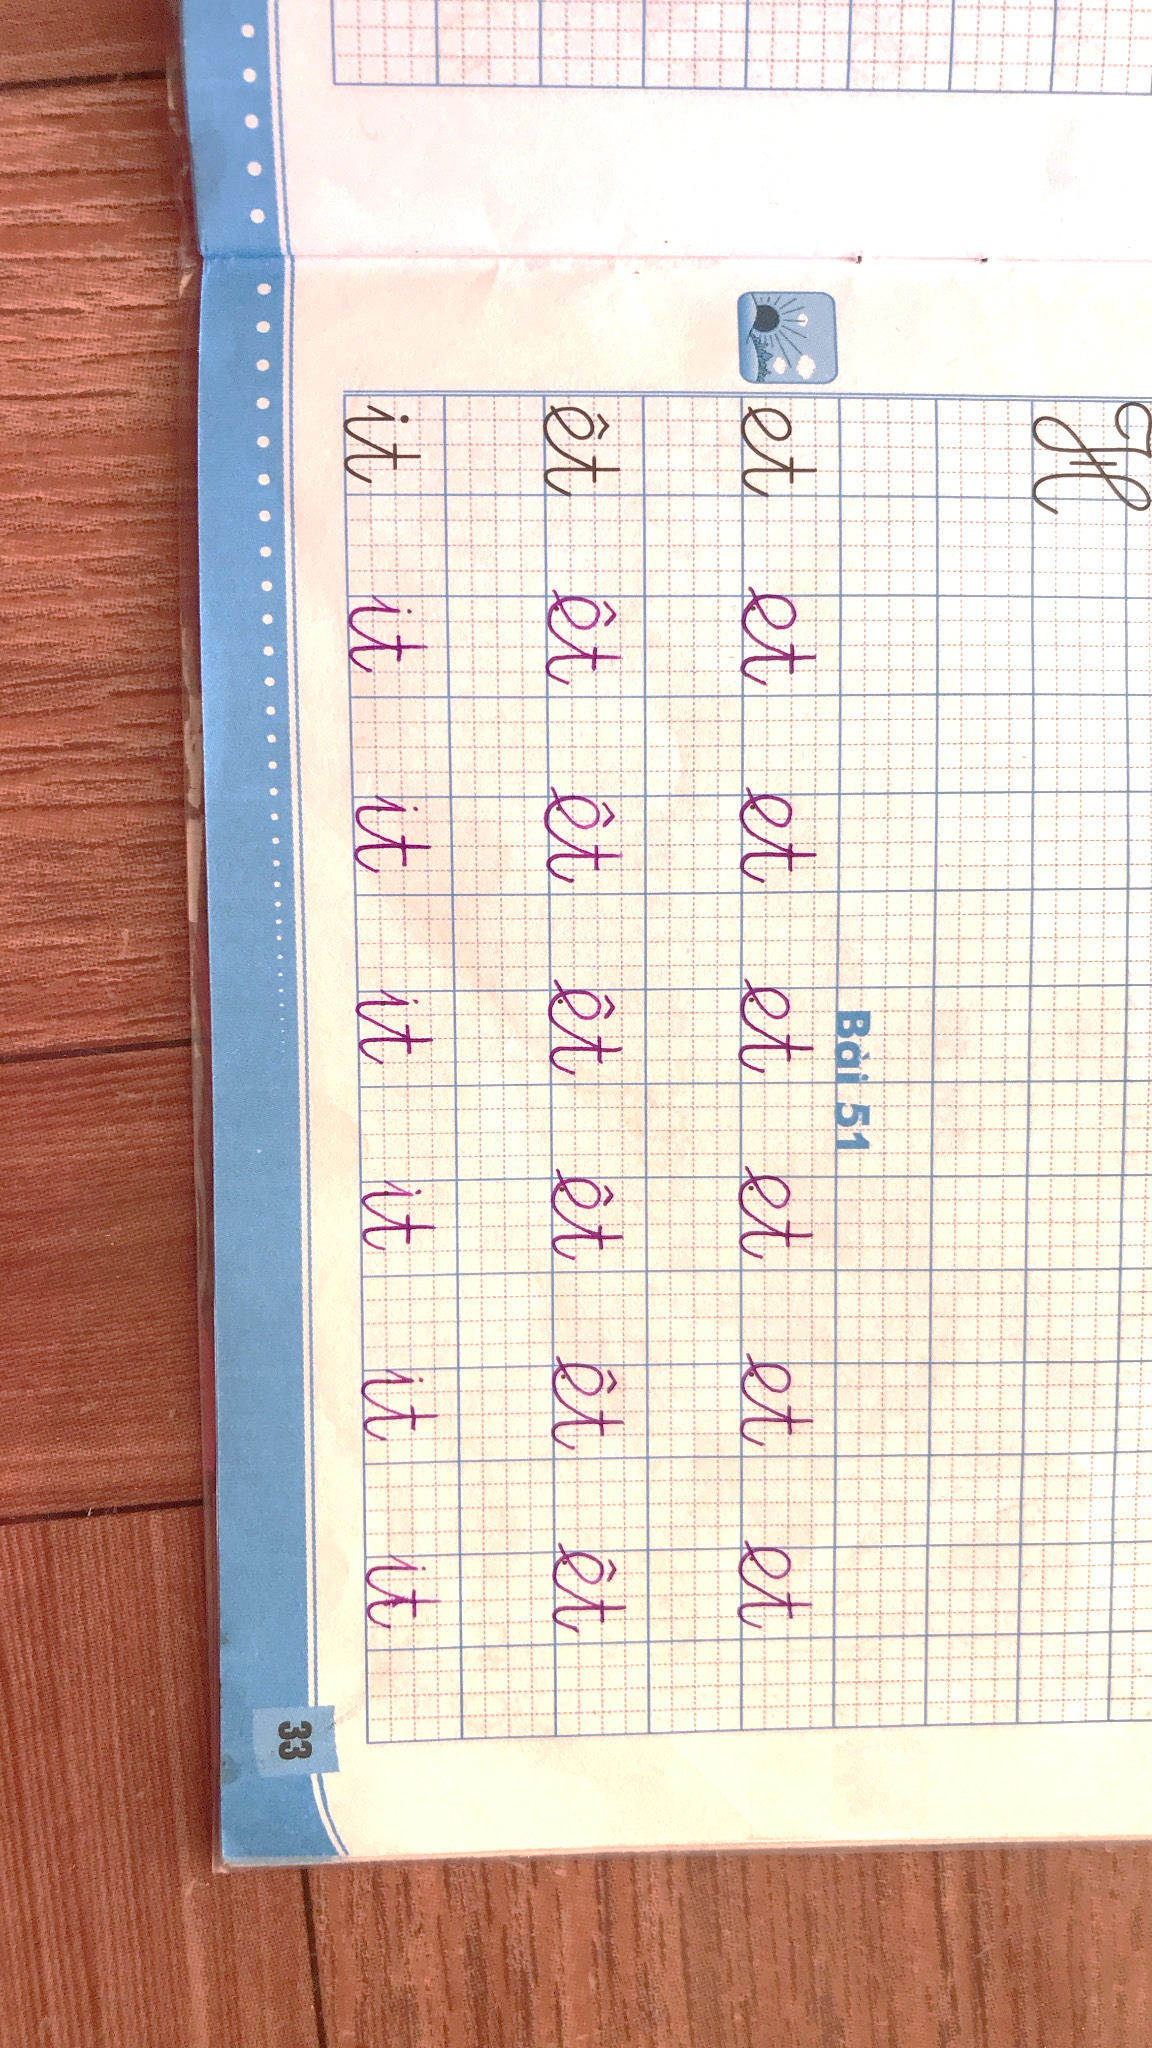 H
Bài 51
et et et et et et et
êt êt êt êt êt êt êt
it it it it it it it
33